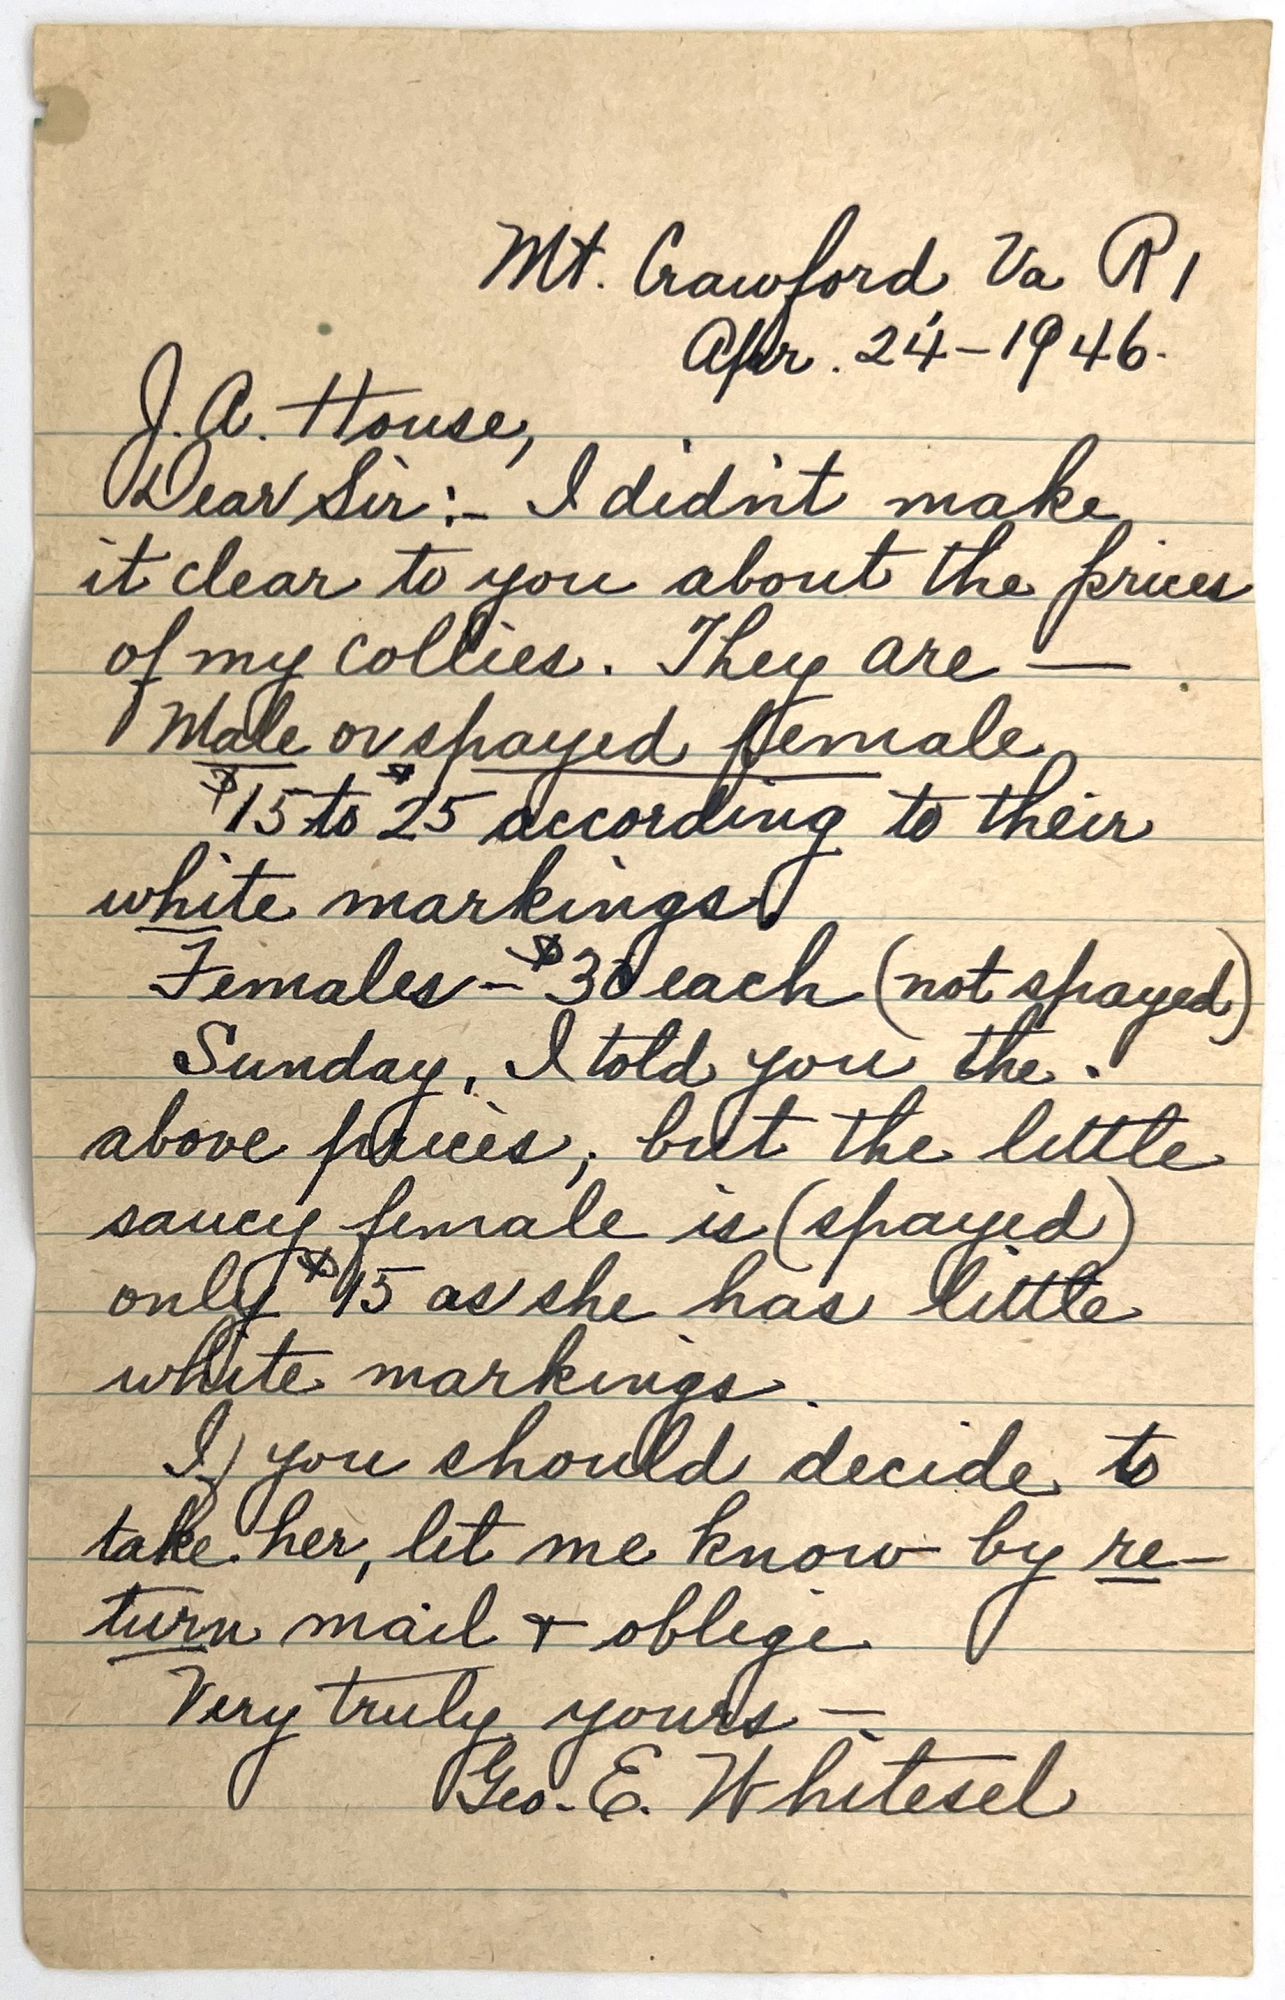 Mt. Crawford Va R 1
Apr. 24 - 1946.
J. A. House,
Dear Sir:- I didn't make
it clear to you about the prices
of my collies. They are —
Male or spayed female
$15 to $25 according to their
white markings.
Females - $30 each (not spayed)
Sunday, I told you the
above prices, but the little
saucy female is (spayed)
only $15 as she has little
white markings.
If you should decide to
take her, let me know by re-
turn mail & oblige
Very truly yours —
Geo. E. Whitesel